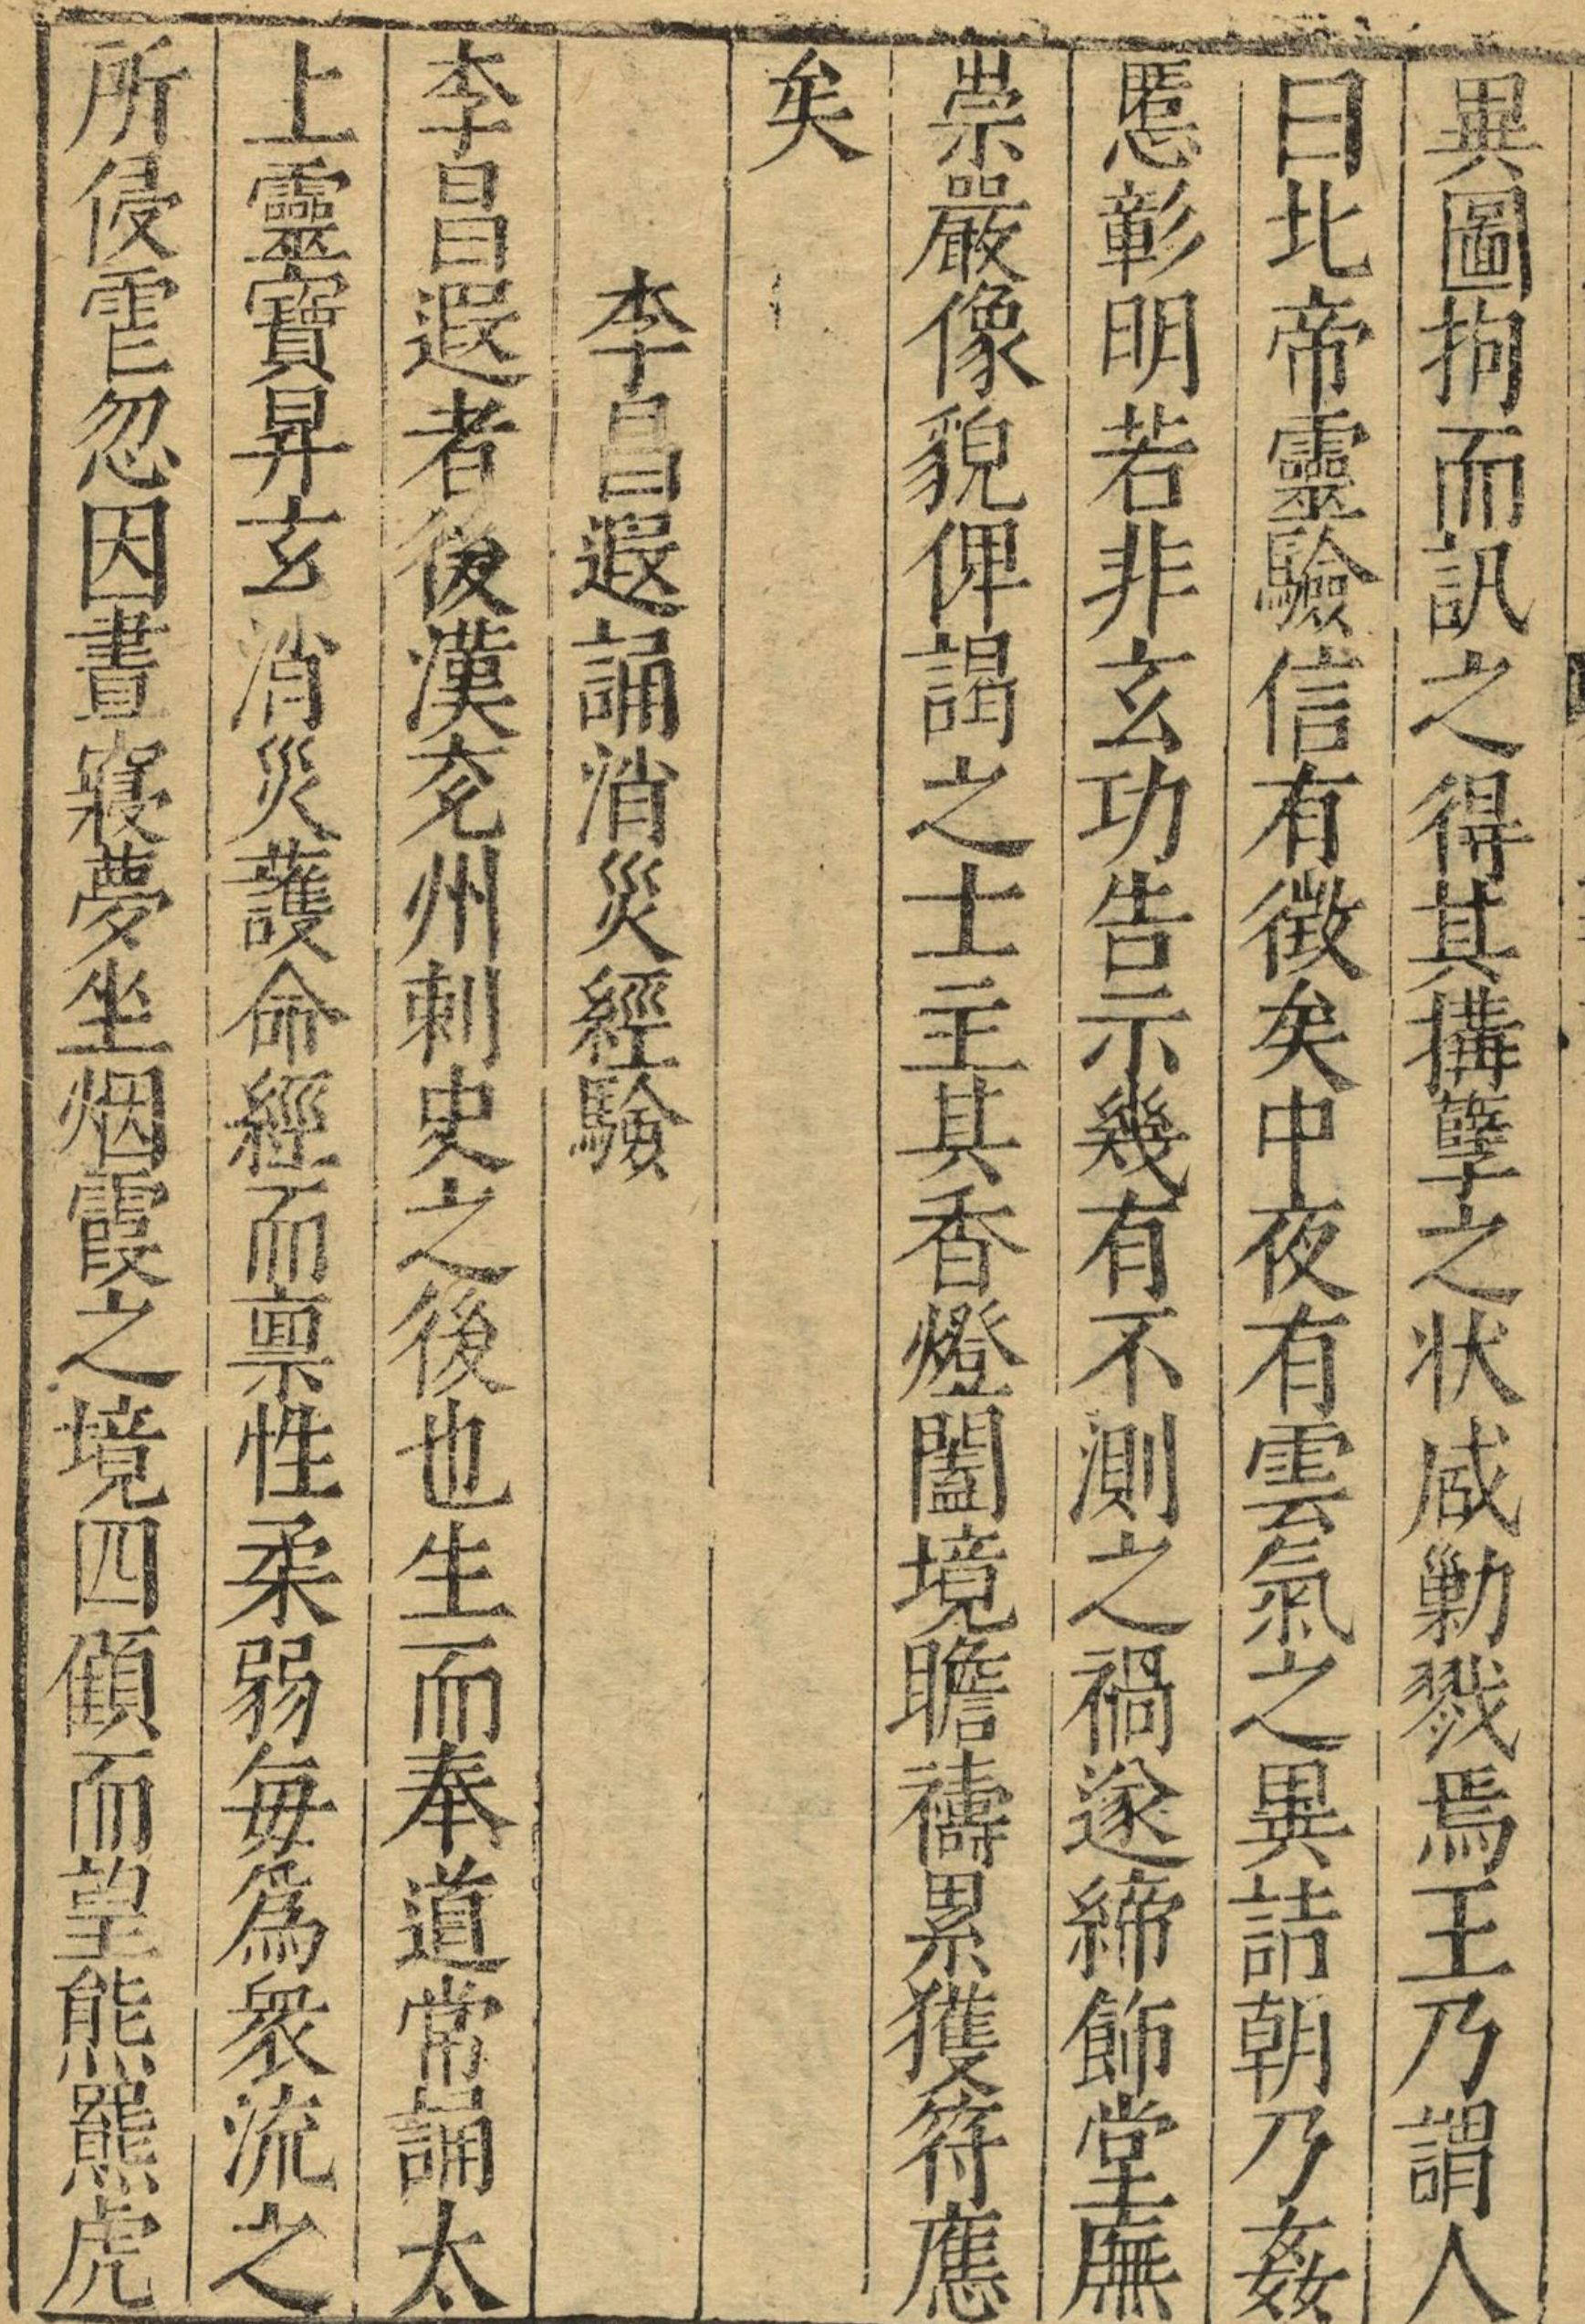 異圖拘而訊之得其搆孽之状咸勦戮焉王乃謂人
曰北帝靈驗信有徴矣中夜有雲氣之異詰朝乃姦
慝彰明若非玄功告示幾有不測之禍遂締飾堂廡
崇嚴像貌俾謁之士主其香燈闔境瞻禱累獲符應
矣
李昌遐誦消災經驗
李昌遐者後漢兖州刺史之後也生而奉道常誦太
上靈寶昇玄消災護命經而禀性柔弱每爲衆流之
所侵雩忽因晝寢夢坐烟霞之境四顧而望熊羆虎